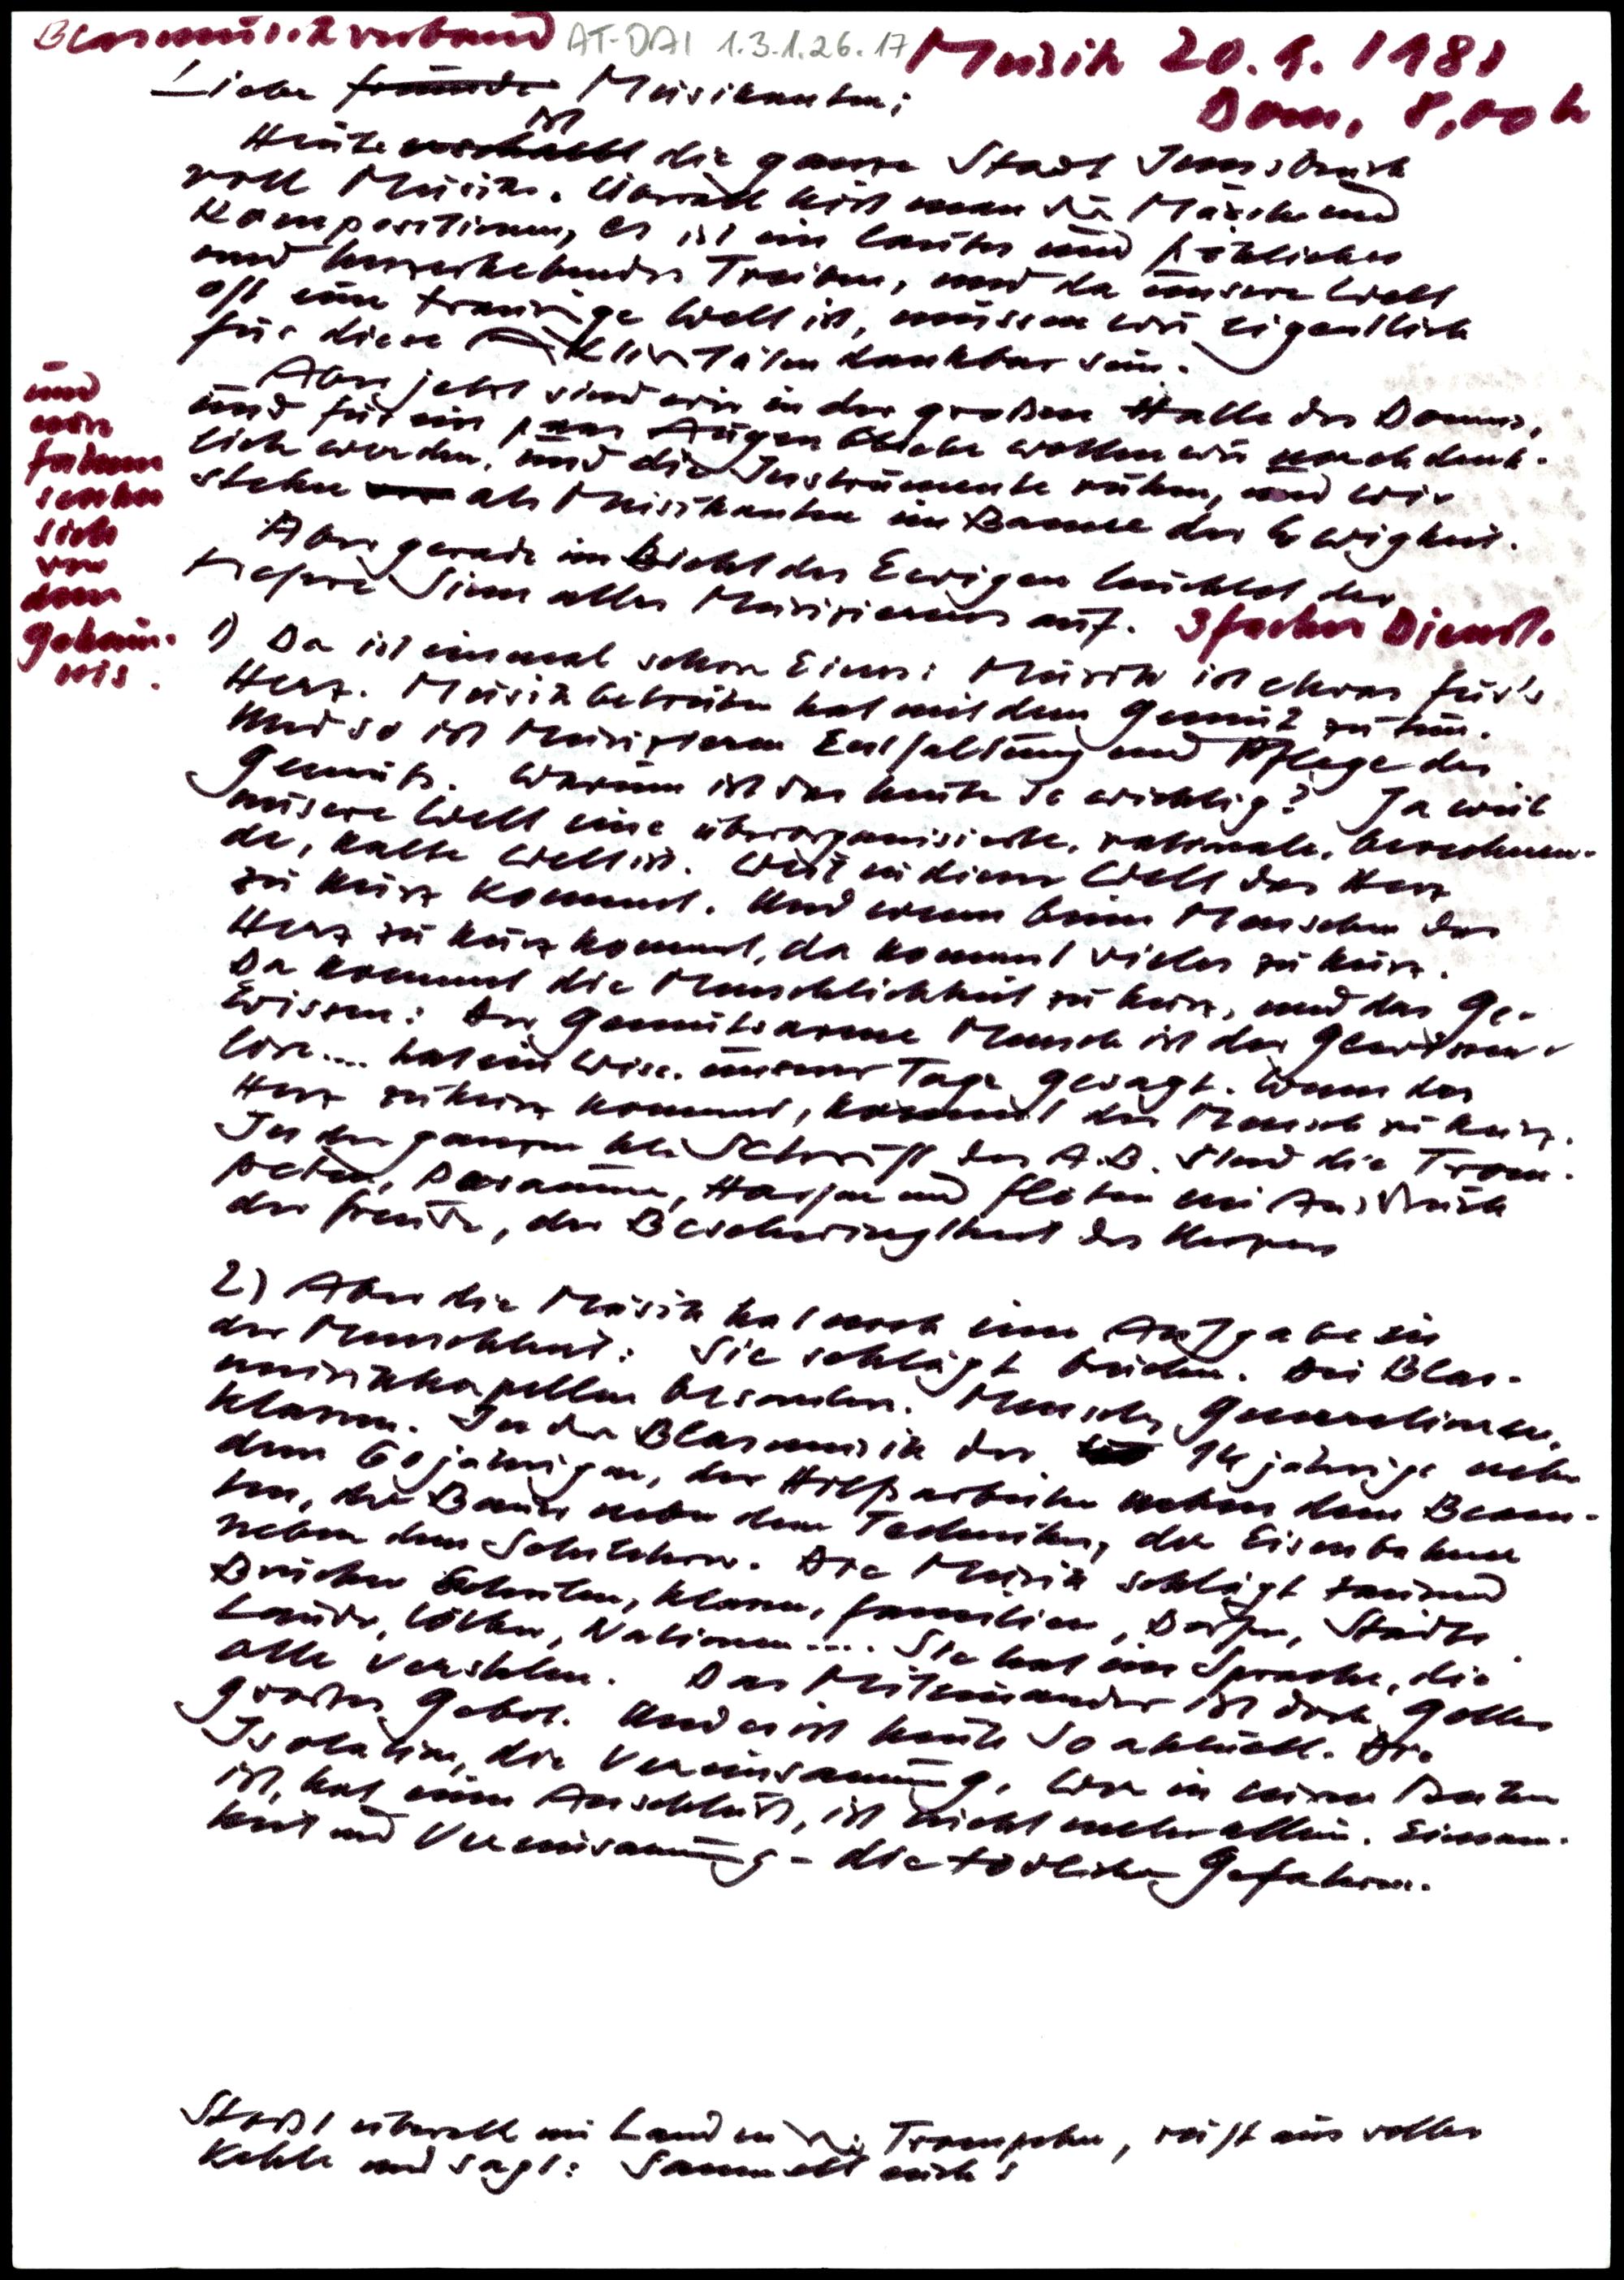 Blasmusikverband AT-DAI 1.3.1.26.17 Musik 20.9.1981
Dom, 8,00 h
Liebe Freunde Musikanten;
ist
Heute erschallt die ganze Stadt Innsbruck
voll Musik. Überall hört man die Märsche und
Kompositionen, es ist ein lautes und fröhliches
und herzerhebendes Treiben, und da unsere Welt
oft eine traurige Welt ist, müssen wir eigentlich
für diese Aktivitäten dankbar sein.
Aber jetzt sind wir in der großen Halle des Domes,
und für ein paar Augenblicke wollen wir nachdenk-
lich werden, und die Instrumente ruhen, und wir
stehen als Musikanten im Banne der Ewigkeit.
und
unsere
Fahnen
senken
sich
vor
dem
Geheim-
nis.
Aber gerade im Licht des Ewigen leuchtet der
tiefere Sinn alles Musizierens auf. 3facher Dienst.
1) Da ist einmal schon Eines: Musik ist etwas für's
Herz. Musik betreiben hat mit dem Gemüt zu tun.
Und so ist Musizieren Entfaltung und Pflege des
Gemüts. Warum ist das heute so wichtig? Ja weil
unsere Welt eine überorganisierte, rationale, berechnen-
de, kalte Welt ist. Weil in dieser Welt das Herz
zu kurz kommt. Und wenn beim Menschen das
Herz zu kurz kommt, da kommt vieles zu kurz.
Da kommt die Menschlichkeit zu kurz, und das Ge-
wissen: Der gemütsarme Mensch ist der Gewissen-
lose.... hat ein Wiss. unserer Tage gesagt. Wenn das
Herz zu kurz kommt, kommt der Mensch zu kurz.
In der ganzen hl. Schrift des A.B. sind die Trom-
peten, Posaunen, Harfen und Flöten ein Ausdruck
der Freude, der Beschwingtheit des Herzens
2) Aber die Musik hat noch eine Aufgabe in
der Menschheit: Sie schlägt Brücken. Die Blas-
musikkapellen besonders. Menschen, Generationen,
Klassen. In der Blasmusik der 14 jährige neben
dem 60 jährigen, der Hilfsarbeiter neben dem Beam-
ten, der Bauer neben dem Techniker, der Eisenbahner
neben dem Schullehrer. Die Musik schlägt tausend
Brücken Schulen, Klassen, Familien, Dörfer, Städte
Länder, Völker, Nationen.... Sie hat eine Sprache, die
alle verstehen. Das Miteinander ist doch Gottes
großes Gebot. Und es ist heute so aktuell. Die
Isolation, die Vereinsamung. Wer in einer
ist, hat einen Anschluß, ist nicht mehr allein. Einsam-
keit und Vereinsamung - die tödlichen Gefahren.
Stoßt überall im Land in die Trompeten, ruft aus voller
Kehle und sagt: Sammelt euch!